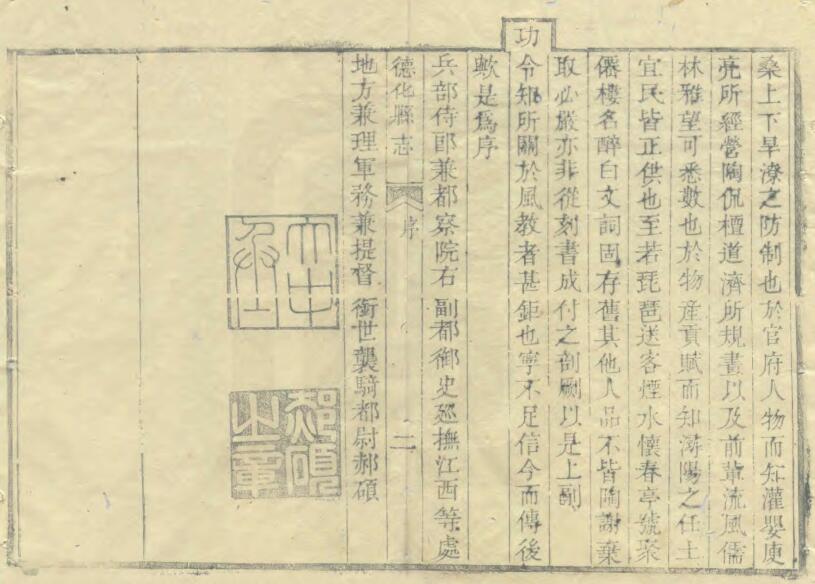 桑上下旱潦之防制也於官府人物而知灌嬰庾
亮所經營陶侃檀道濟所規畫以及前軰流風儒
林雅望可悉數也於物產貢賦而知潯陽之任土
宜民皆正供也至若琵琶送客煙水懷春亭號聚
僊樓名醉白文詞固存舊其他人品不皆陶謝棄
取必嚴亦非從刻書成付之剖劂以是上副
功
令知所關於風教者甚鉅也寧不足信今而傳後
歟是爲序
兵部侍郎兼都察院右副都御史廵撫江西等處
德化縣志 序 二
地方兼理軍務兼提督 銜世襲騎都尉郝碩
郝碩之章